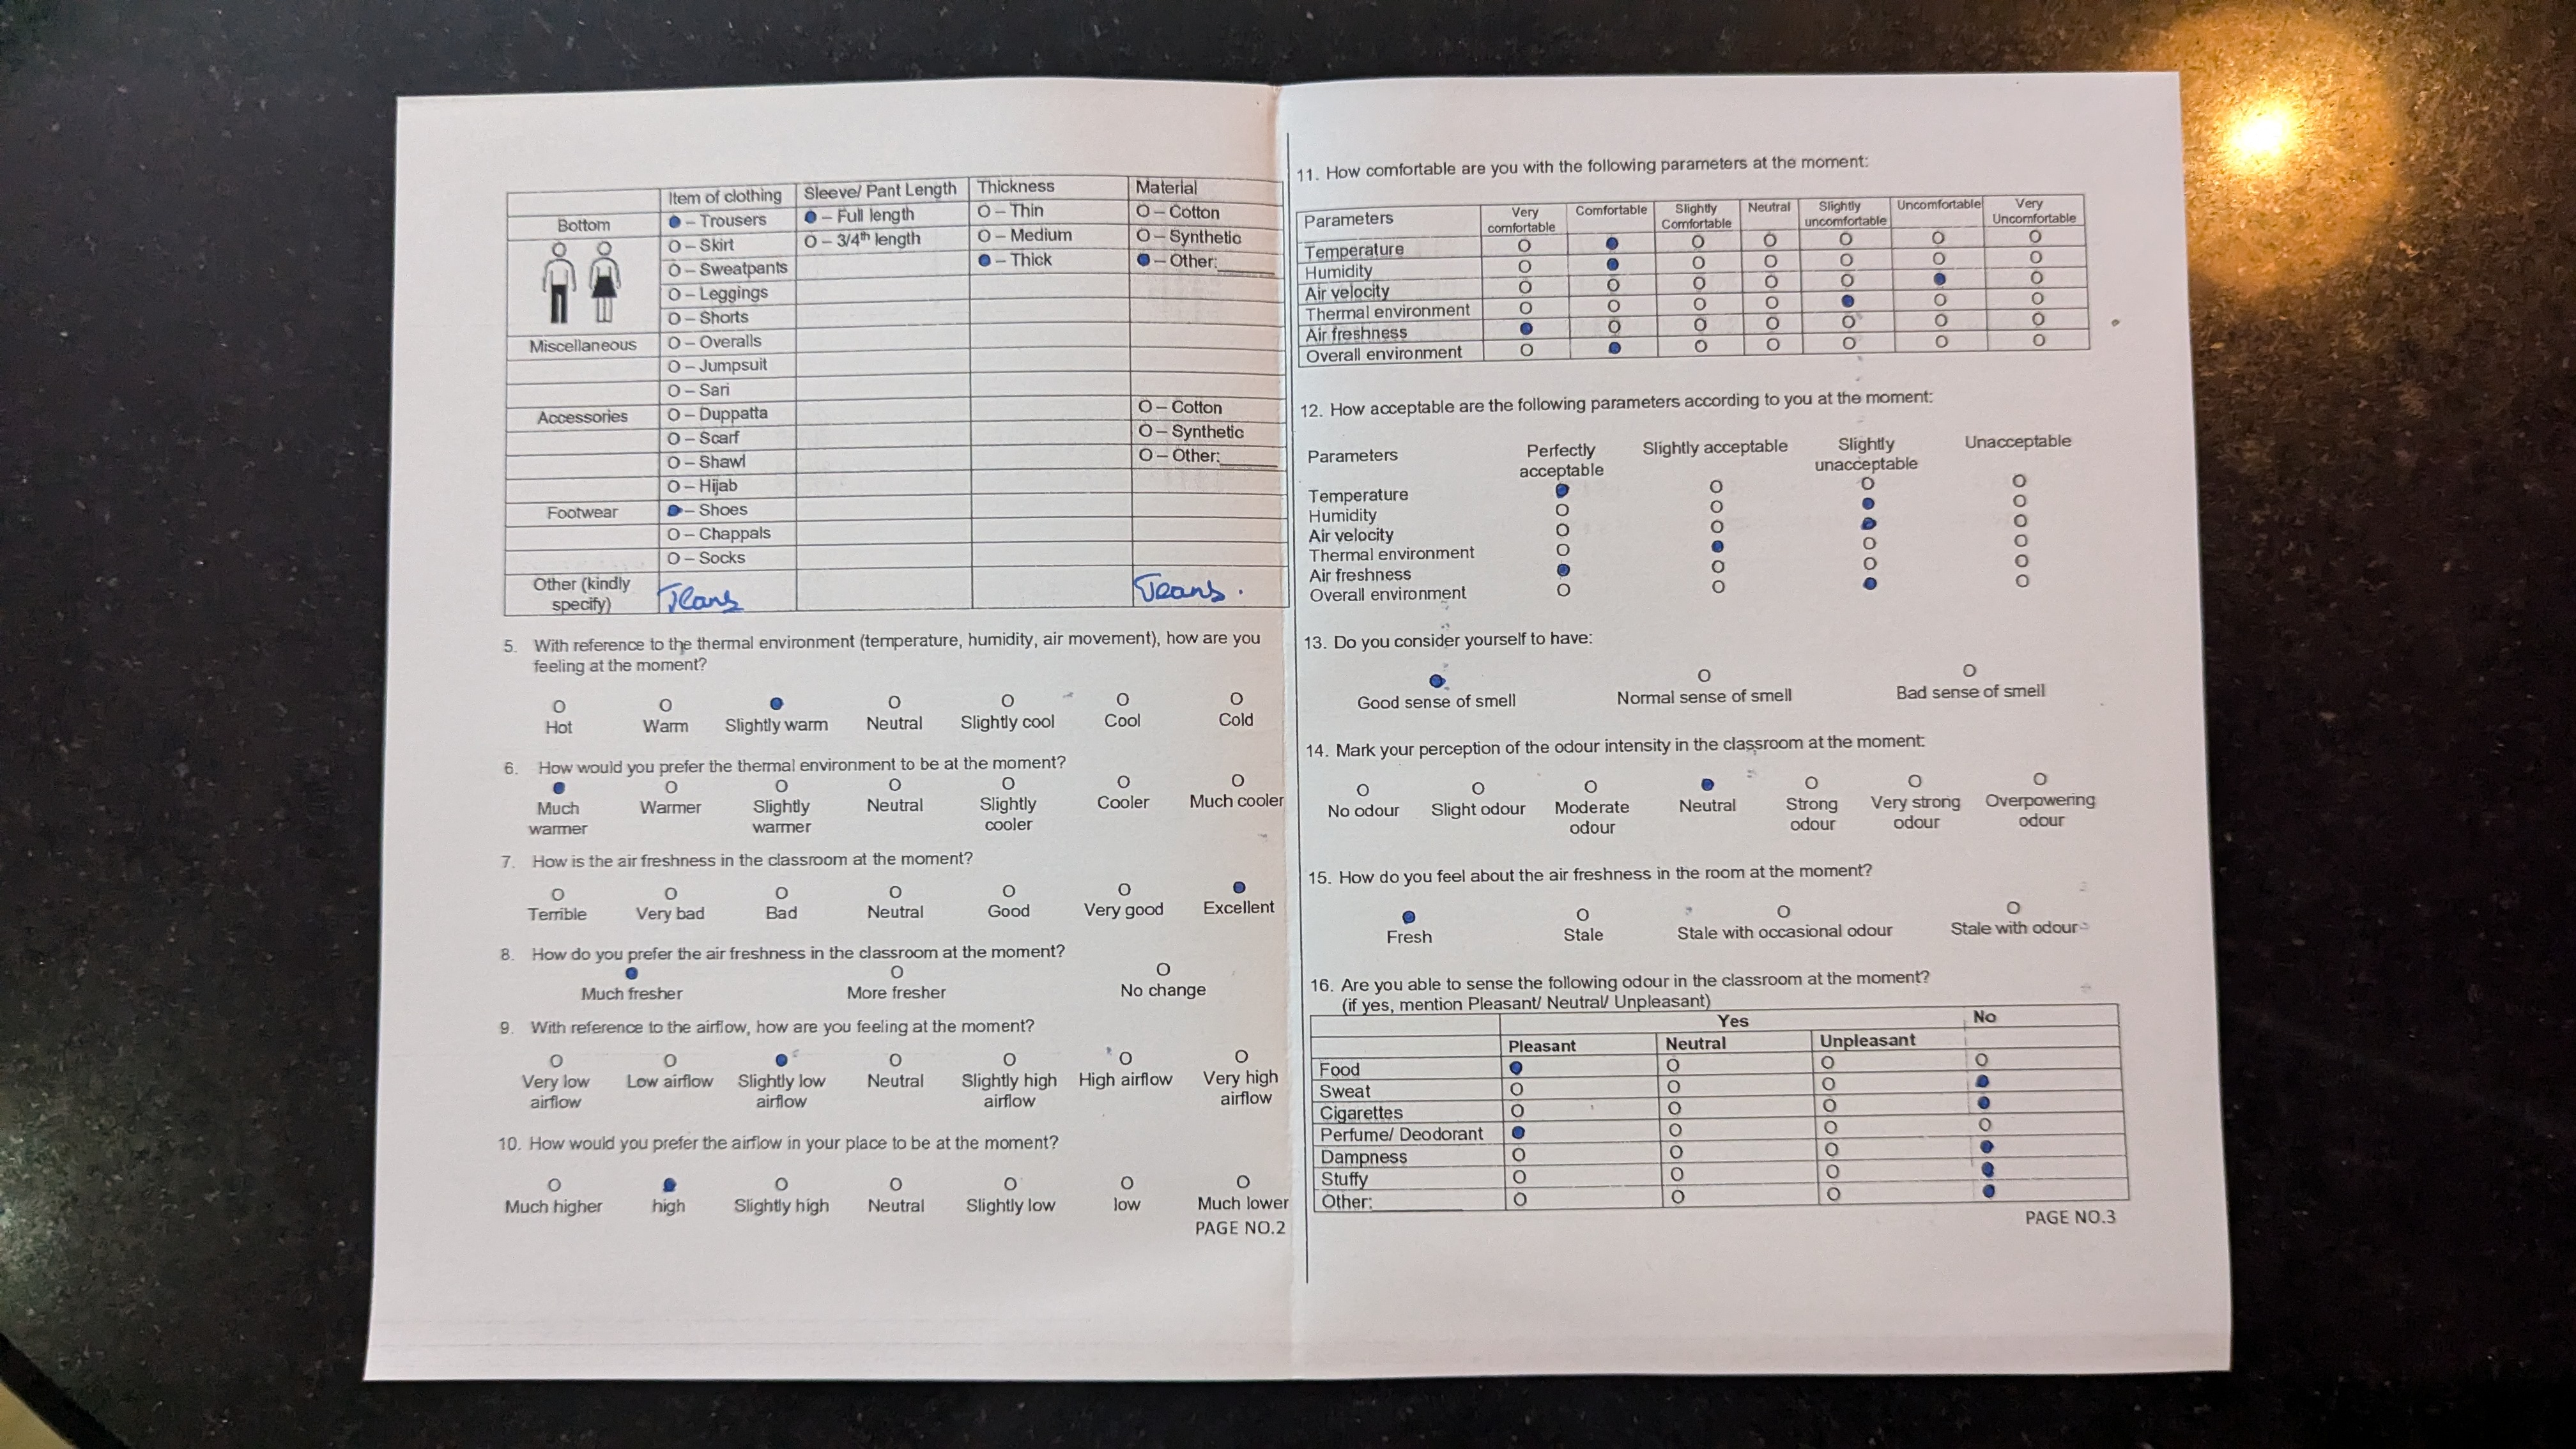 Item of clothing Sleeve/ Pant Length Thickness Material
Bottom ● – Trousers ● – Full length O – Thin O – Cotton
O – Skirt O – 3/4th length O – Medium O – Synthetic
O – Sweatpants ● – Thick ● – Other:______
O – Leggings
O – Shorts
Miscellaneous O – Overalls
O – Jumpsuit
O – Sari
Accessories O – Duppatta O – Cotton
O – Scarf O – Synthetic
O – Shawl O – Other:______
O – Hijab
Footwear ● – Shoes
O – Chappals
O – Socks
Other (kindly
specify) Jeans Jeans.
5. With reference to the thermal environment (temperature, humidity, air movement), how are you
feeling at the moment?
O O ● O O O O
Hot Warm Slightly warm Neutral Slightly cool Cool Cold
6. How would you prefer the thermal environment to be at the moment?
● O O O O O O
Much Warmer Slightly Neutral Slightly Cooler Much cooler
warmer warmer cooler
7. How is the air freshness in the classroom at the moment?
O O O O O O ●
Terrible Very bad Bad Neutral Good Very good Excellent
8. How do you prefer the air freshness in the classroom at the moment?
● O O
Much fresher More fresher No change
9. With reference to the airflow, how are you feeling at the moment?
O O ● O O O O
Very low Low airflow Slightly low Neutral Slightly high High airflow Very high
airflow airflow airflow airflow
10. How would you prefer the airflow in your place to be at the moment?
O ● O O O O O
Much higher high Slightly high Neutral Slightly low low Much lower
PAGE NO.2
11. How comfortable are you with the following parameters at the moment:
Parameters Very Comfortable Slightly Neutral Slightly Uncomfortable Very
comfortable Comfortable uncomfortable Uncomfortable
Temperature O ● O O O O O
Humidity O ● O O O O O
Air velocity O O O O O ● O
Thermal environment O O O O ● O O
Air freshness ● O O O O O O
Overall environment O ● O O O O O
12. How acceptable are the following parameters according to you at the moment:
Parameters Perfectly Slightly acceptable Slightly Unacceptable
acceptable unacceptable
Temperature ● O O O
Humidity O O ● O
Air velocity O O ● O
Thermal environment O ● O O
Air freshness ● O O O
Overall environment O O ● O
13. Do you consider yourself to have:
● O O
Good sense of smell Normal sense of smell Bad sense of smell
14. Mark your perception of the odour intensity in the classroom at the moment:
O O O ● O O O
No odour Slight odour Moderate Neutral Strong Very strong Overpowering
odour odour odour odour
15. How do you feel about the air freshness in the room at the moment?
● O O O
Fresh Stale Stale with occasional odour Stale with odour
16. Are you able to sense the following odour in the classroom at the moment?
(if yes, mention Pleasant/ Neutral/ Unpleasant)
Yes No
Pleasant Neutral Unpleasant
Food ● O O O
Sweat O O O ●
Cigarettes O O O ●
Perfume/ Deodorant ● O O O
Dampness O O O ●
Stuffy O O O ●
Other:__________ O O O ●
PAGE NO.3